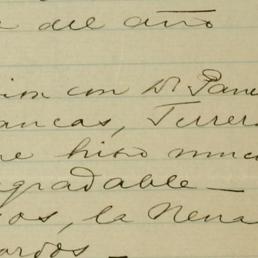 e del año
ion con Dr Pane
ancas, Terrer
e hizo muc
gradable —
os, la Nena
ardos —